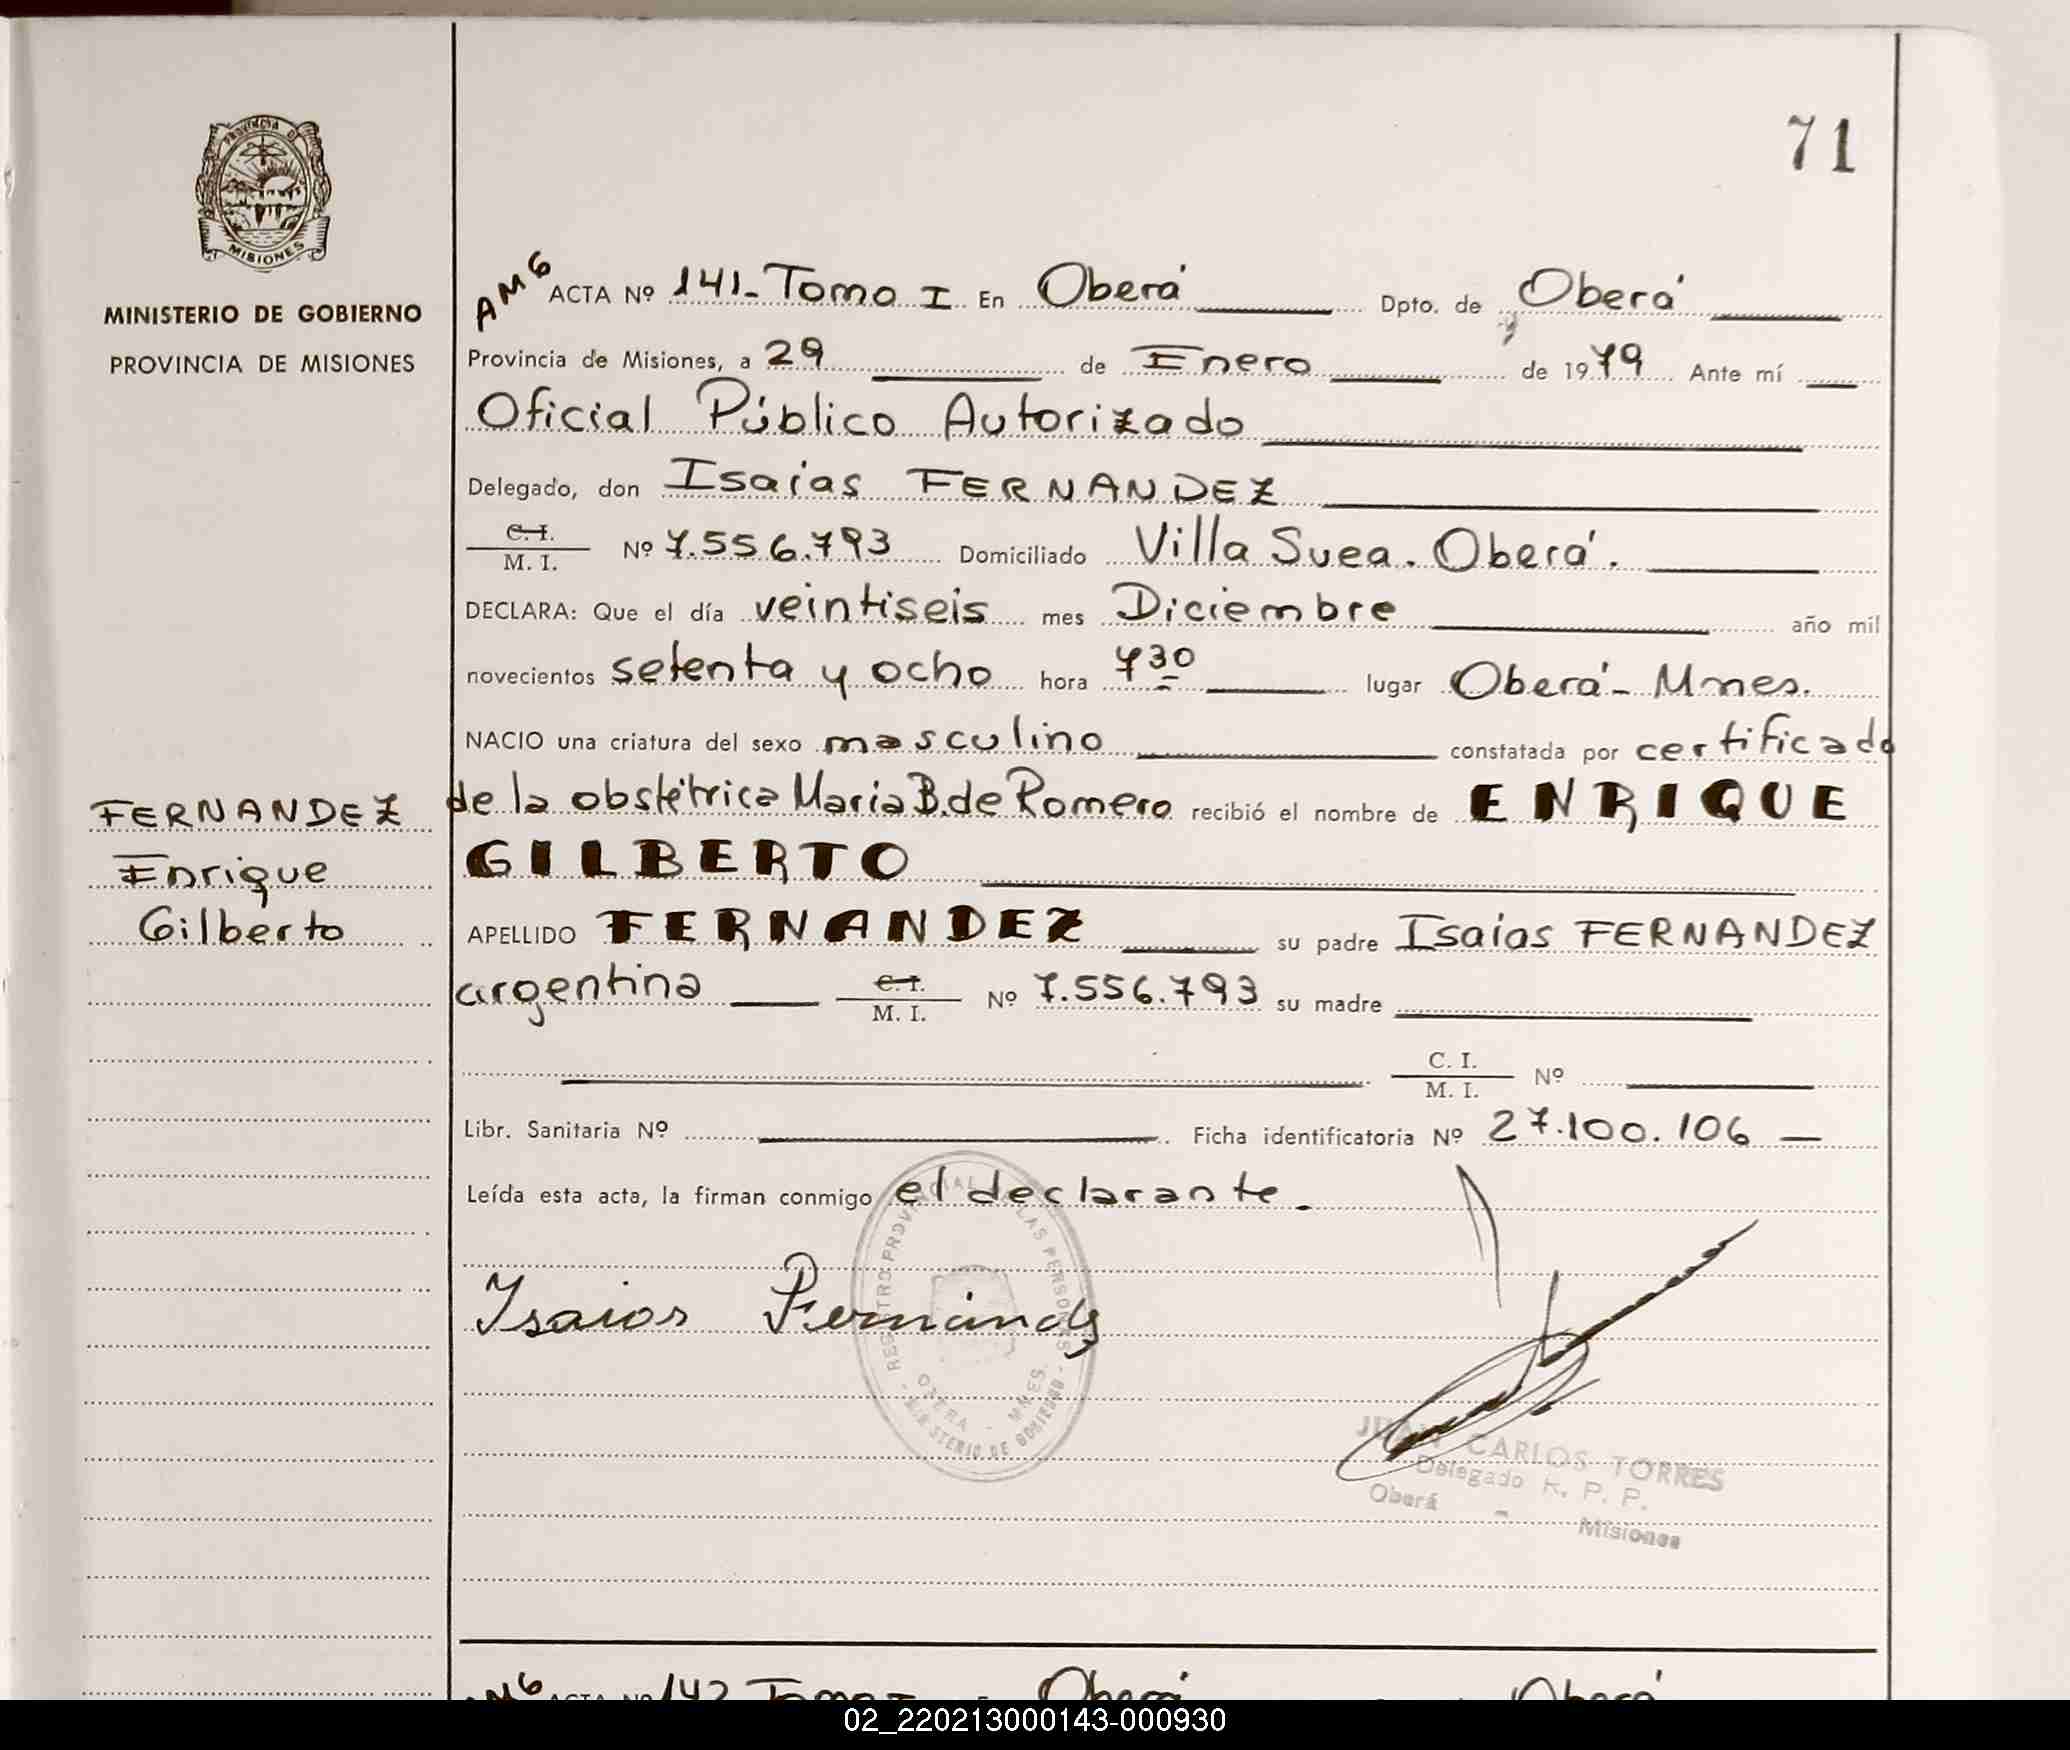 71
PROVINCIA DE
MISIONES
MINISTERIO DE GOBIERNO
PROVINCIA DE MISIONES
AMG ACTA Nº 141-Tomo I En Oberá Dpto. de Oberá
Provincia de Misiones, a 29 de Enero de 1979 Ante mí
Oficial Público Autorizado
Delegado, don Isaias FERNANDEZ
C. I.
M. I. Nº 7.556.793 Domiciliado Villa Svea. Oberá.
DECLARA: Que el día veintiseis mes Diciembre año mil
novecientos setenta y ocho hora 730 lugar Oberá- Mnes.
NACIO una criatura del sexo masculino constatada por certificado
de la obstétrica Maria B. de Romero recibió el nombre de ENRIQUE
GILBERTO
FERNANDEZ
Enrique
Gilberto
APELLIDO FERNANDEZ su padre Isaias FERNANDEZ
argentina C. I.
M. I. Nº 7.556.793 su madre
C. I.
M. I. Nº
Libr. Sanitaria Nº Ficha identificatoria Nº 27.100.106
Leída esta acta, la firman conmigo el declarante.
Isaias Fernández
REGISTRO PROVINCIAL DE LAS PERSONAS
OBERA - MNES.
- MINISTERIO DE GOBIERNO -
JUAN CARLOS TORRES
Delegado R. P. P.
Oberá - Misiones
AMG ACTA Nº 142 Tomo I En Oberá Oberá
02_220213000143-000930